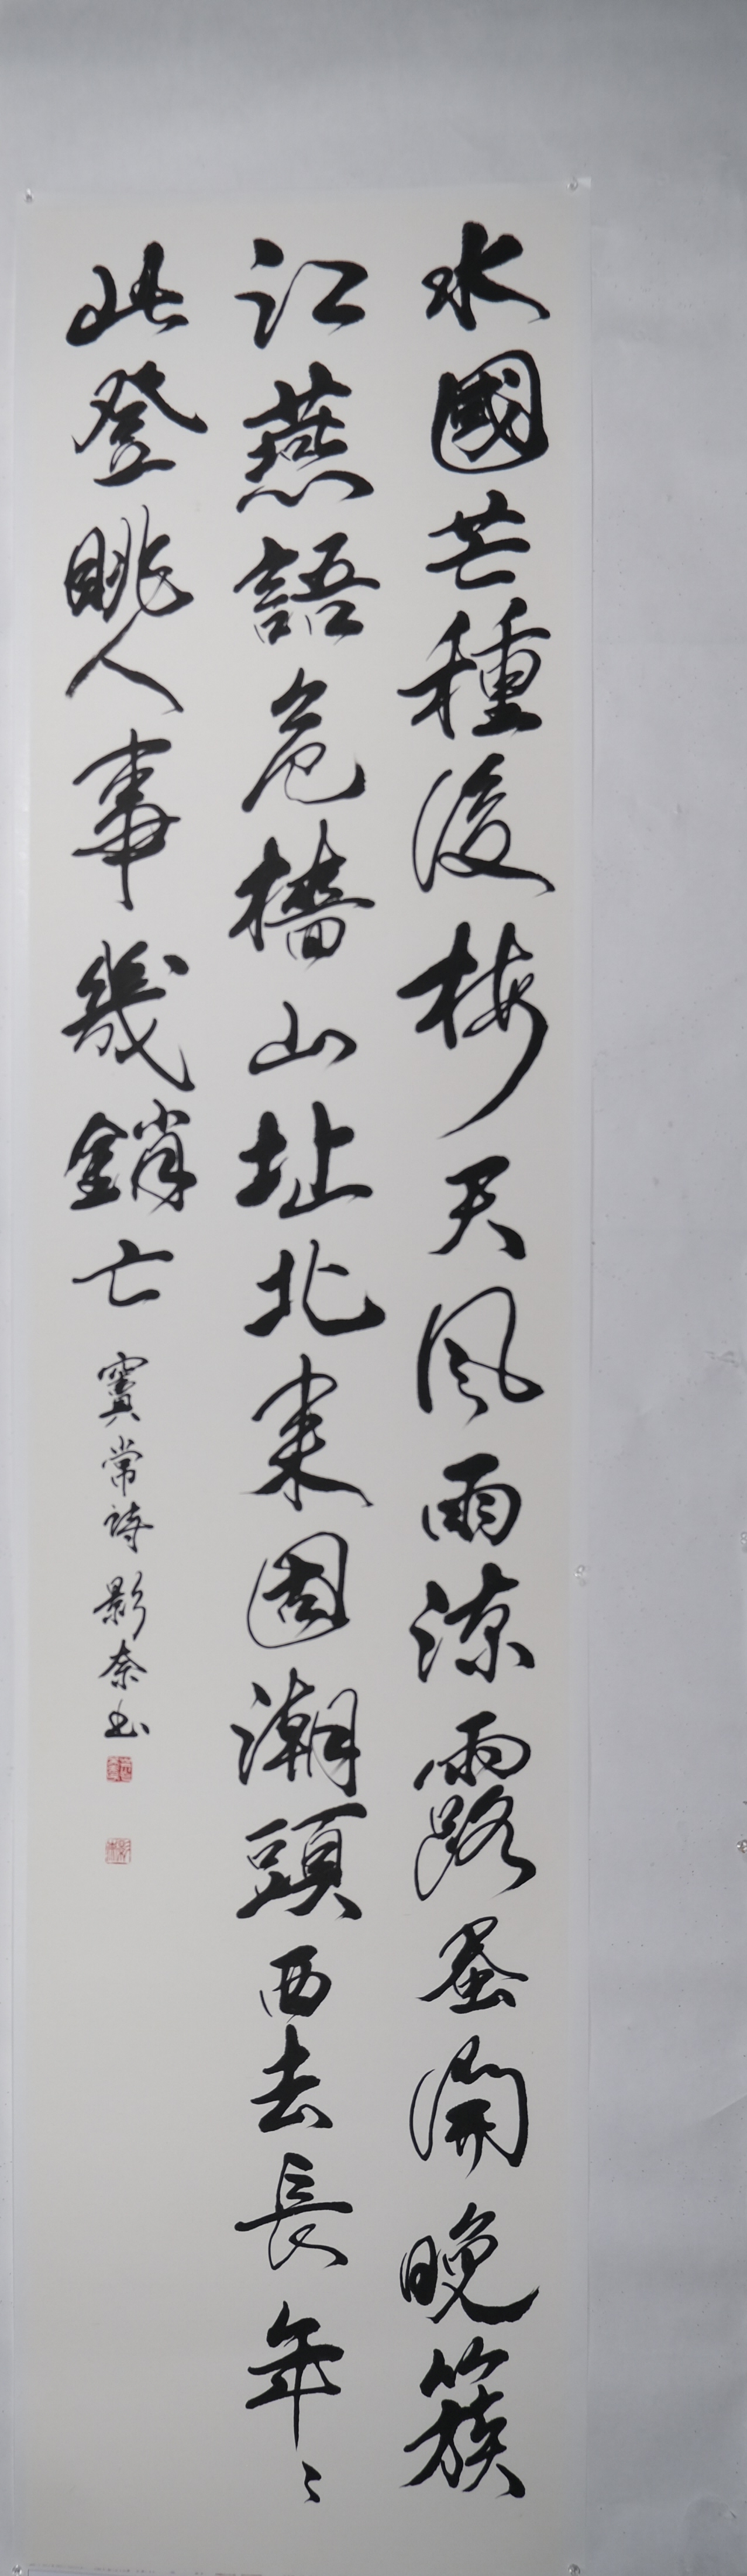 水國芒種後梅天風雨涼露蚕開晚簇
江燕語危檣山址北來固潮頭西去長年〻
此登眺人事幾銷亡 竇常詩 影奈书